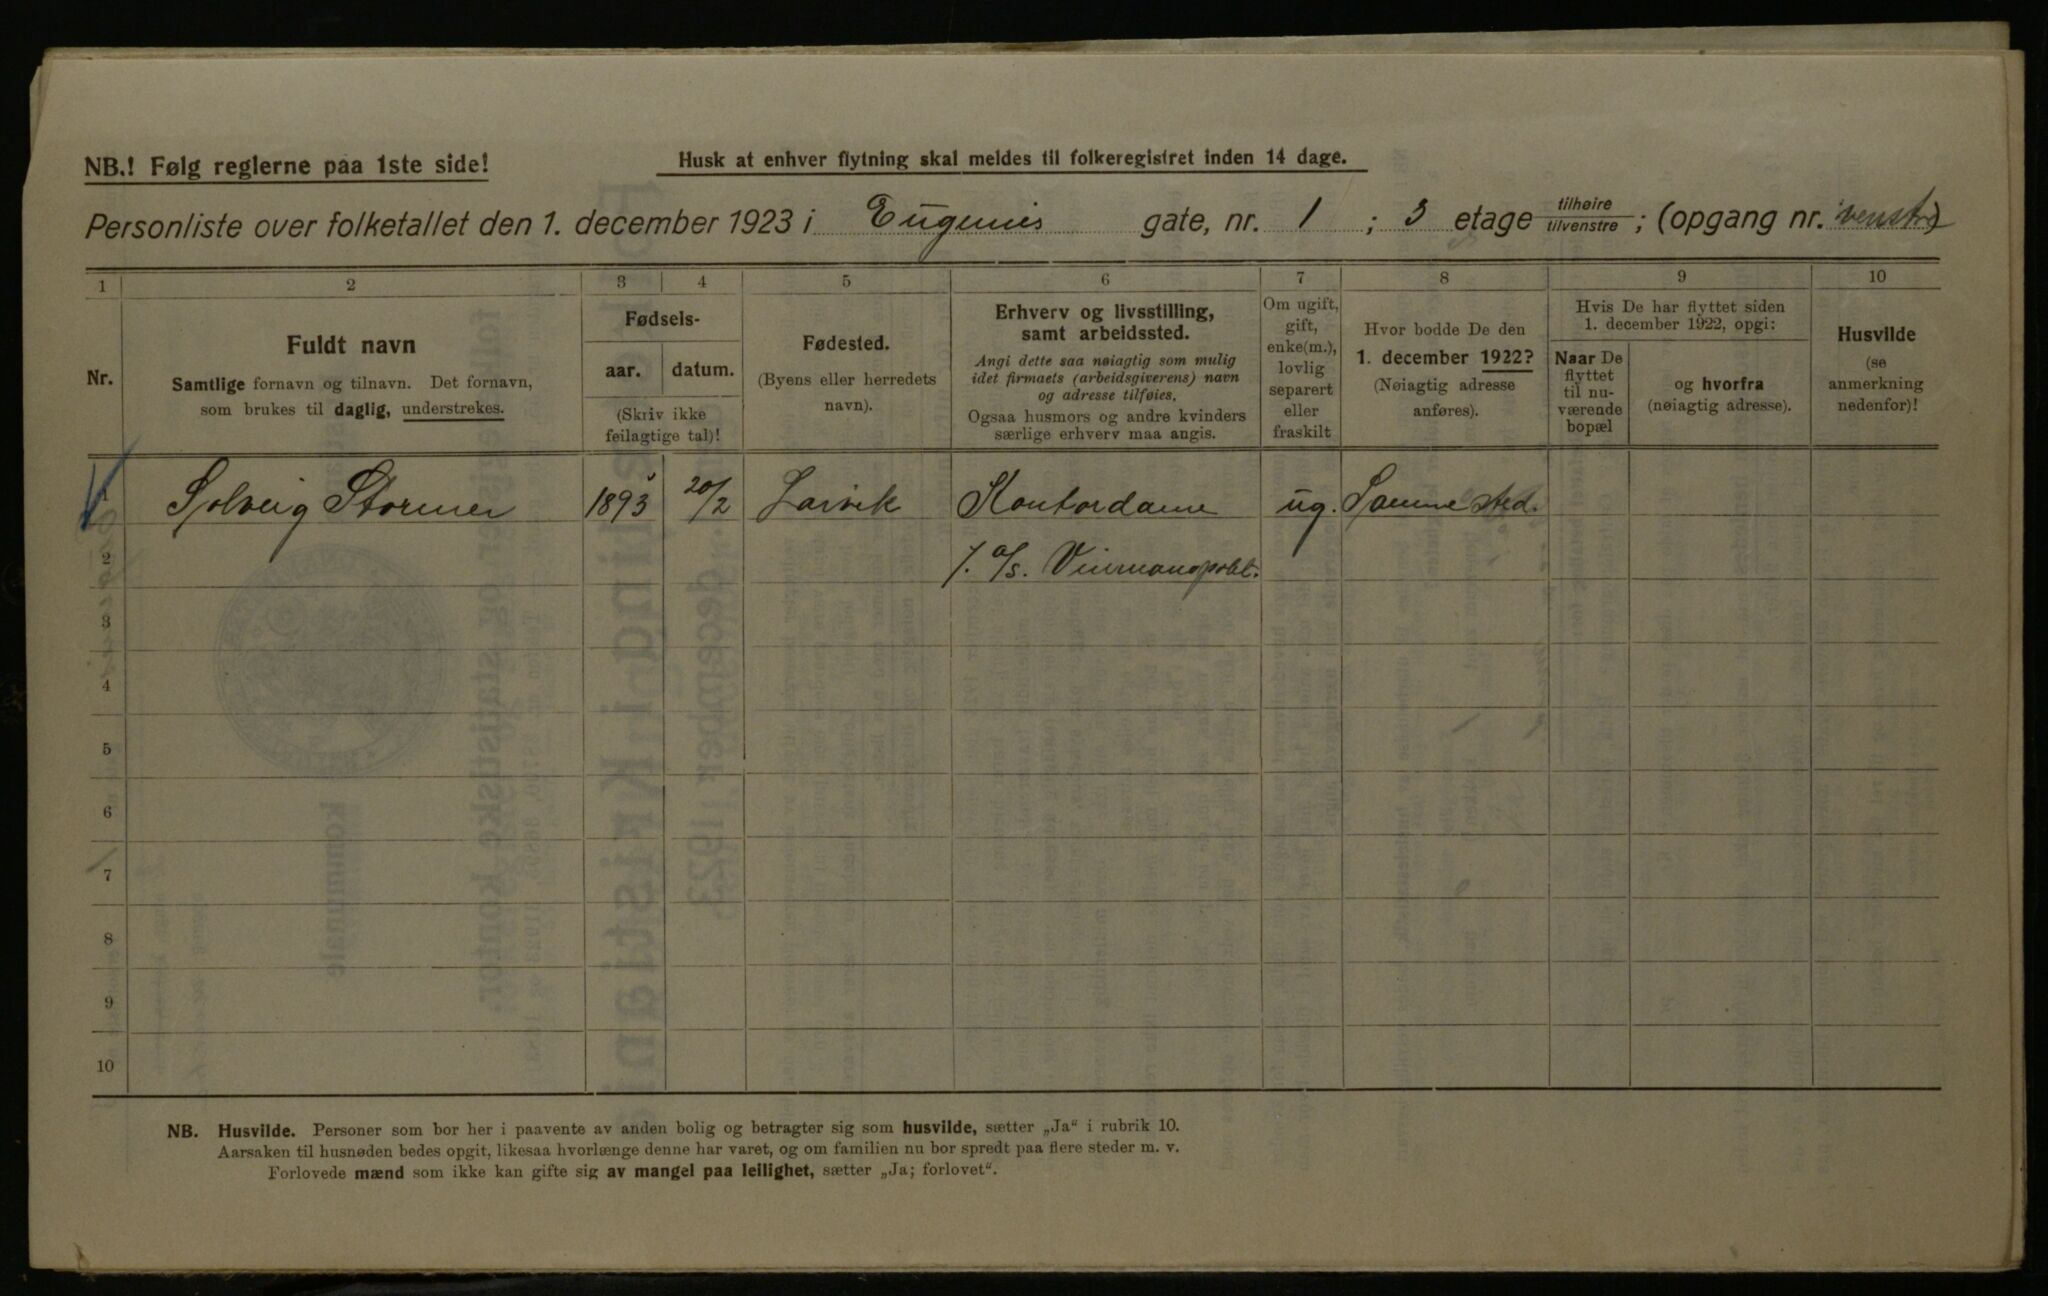 NB.! Følg reglerne paa 1ste side!
Husk at enhver flytning skal meldes til folkeregistret inden 14 dage.
Personliste over folketallet den 1. december 1923 i Eugenies gate, nr. 1 ; 3 etage tilhøire/tilvenstre ; (opgang nr. venstre)
1 2 3 4 5 6 7 8 9 10
Nr.
Fuldt navn
Samtlige fornavn og tilnavn. Det fornavn,
som brukes til daglig, understrekes.
Fødsels-
aar. datum.
(Skriv ikke
feilagtige tal)!
Fødested.
(Byens eller herredets
navn).
Erhverv og livsstilling,
samt arbeidssted.
Angi dette saa nøiagtig som mulig
idet firmaets (arbeidsgiverens) navn
og adresse tilføies.
Ogsaa husmors og andre kvinders
særlige erhverv maa angis.
Om ugift,
gift,
enke(m.),
lovlig
separert
eller
fraskilt
Hvor bodde De den
1. december 1922?
(Nøiagtig adresse
anføres).
Hvis De har flyttet siden
1. december 1922, opgi:
Naar De
flyttet
til nu-
værende
bopæl
og hvorfra
(nøiagtig adresse).
Husvilde
(se
anmerkning
nedenfor)!
1 Solveig Stormer 1893 20/2 Larvik Kontordame ug. Samme sted.
2 f. a/s. Vinmonopolet.
3
4
5
6
7
8
9
10
NB. Husvilde. Personer som bor her i paavente av anden bolig og betragter sig som husvilde, sætter „Ja" i rubrik 10.
Aarsaken til husnøden bedes opgit, likesaa hvorlænge denne har varet, og om familien nu bor spredt paa flere steder m. v.
Forlovede mænd som ikke kan gifte sig av mangel paa leilighet, sætter „Ja; forlovet".